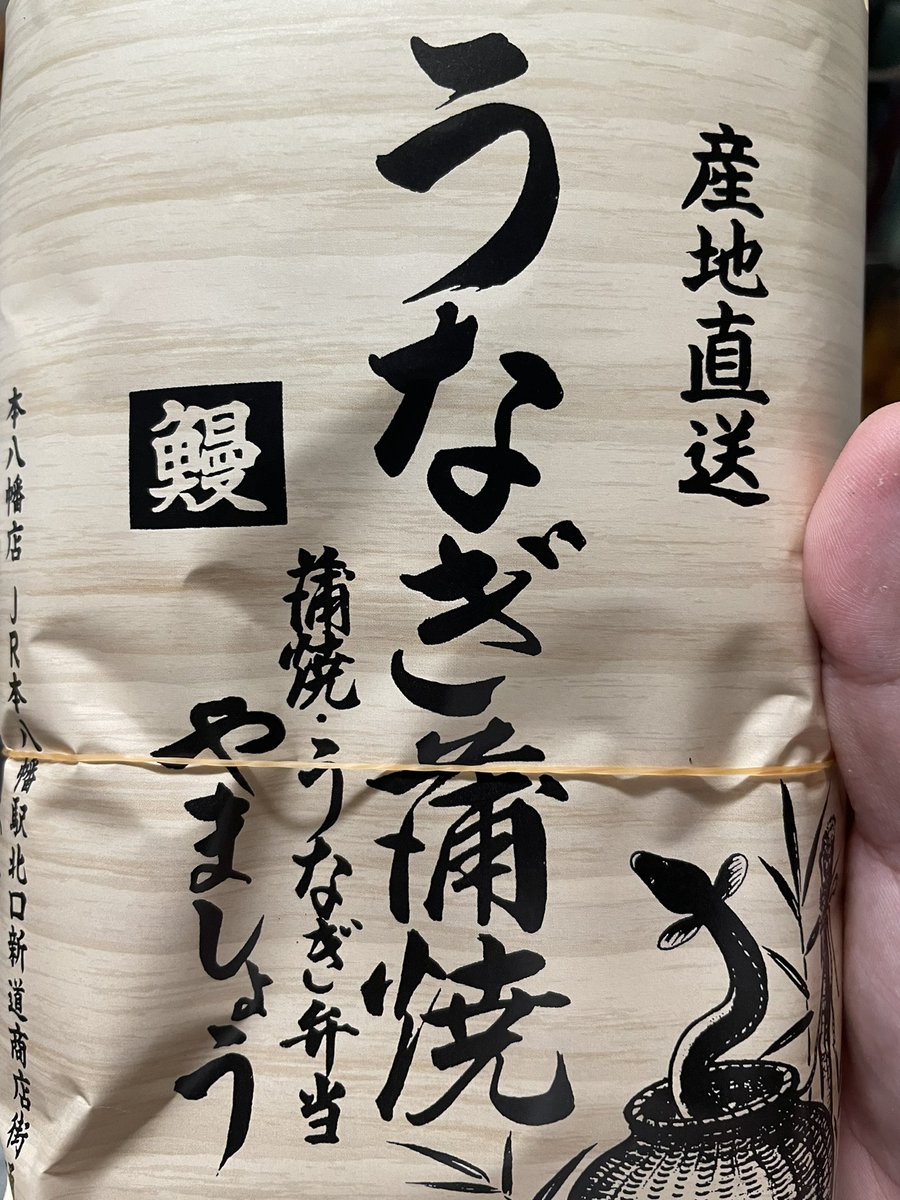 産地直送
うなぎ蒲焼
蒲焼・うなぎ弁当
鰻
やましょう
本八幡店 JR本八幡駅北口新道商店街